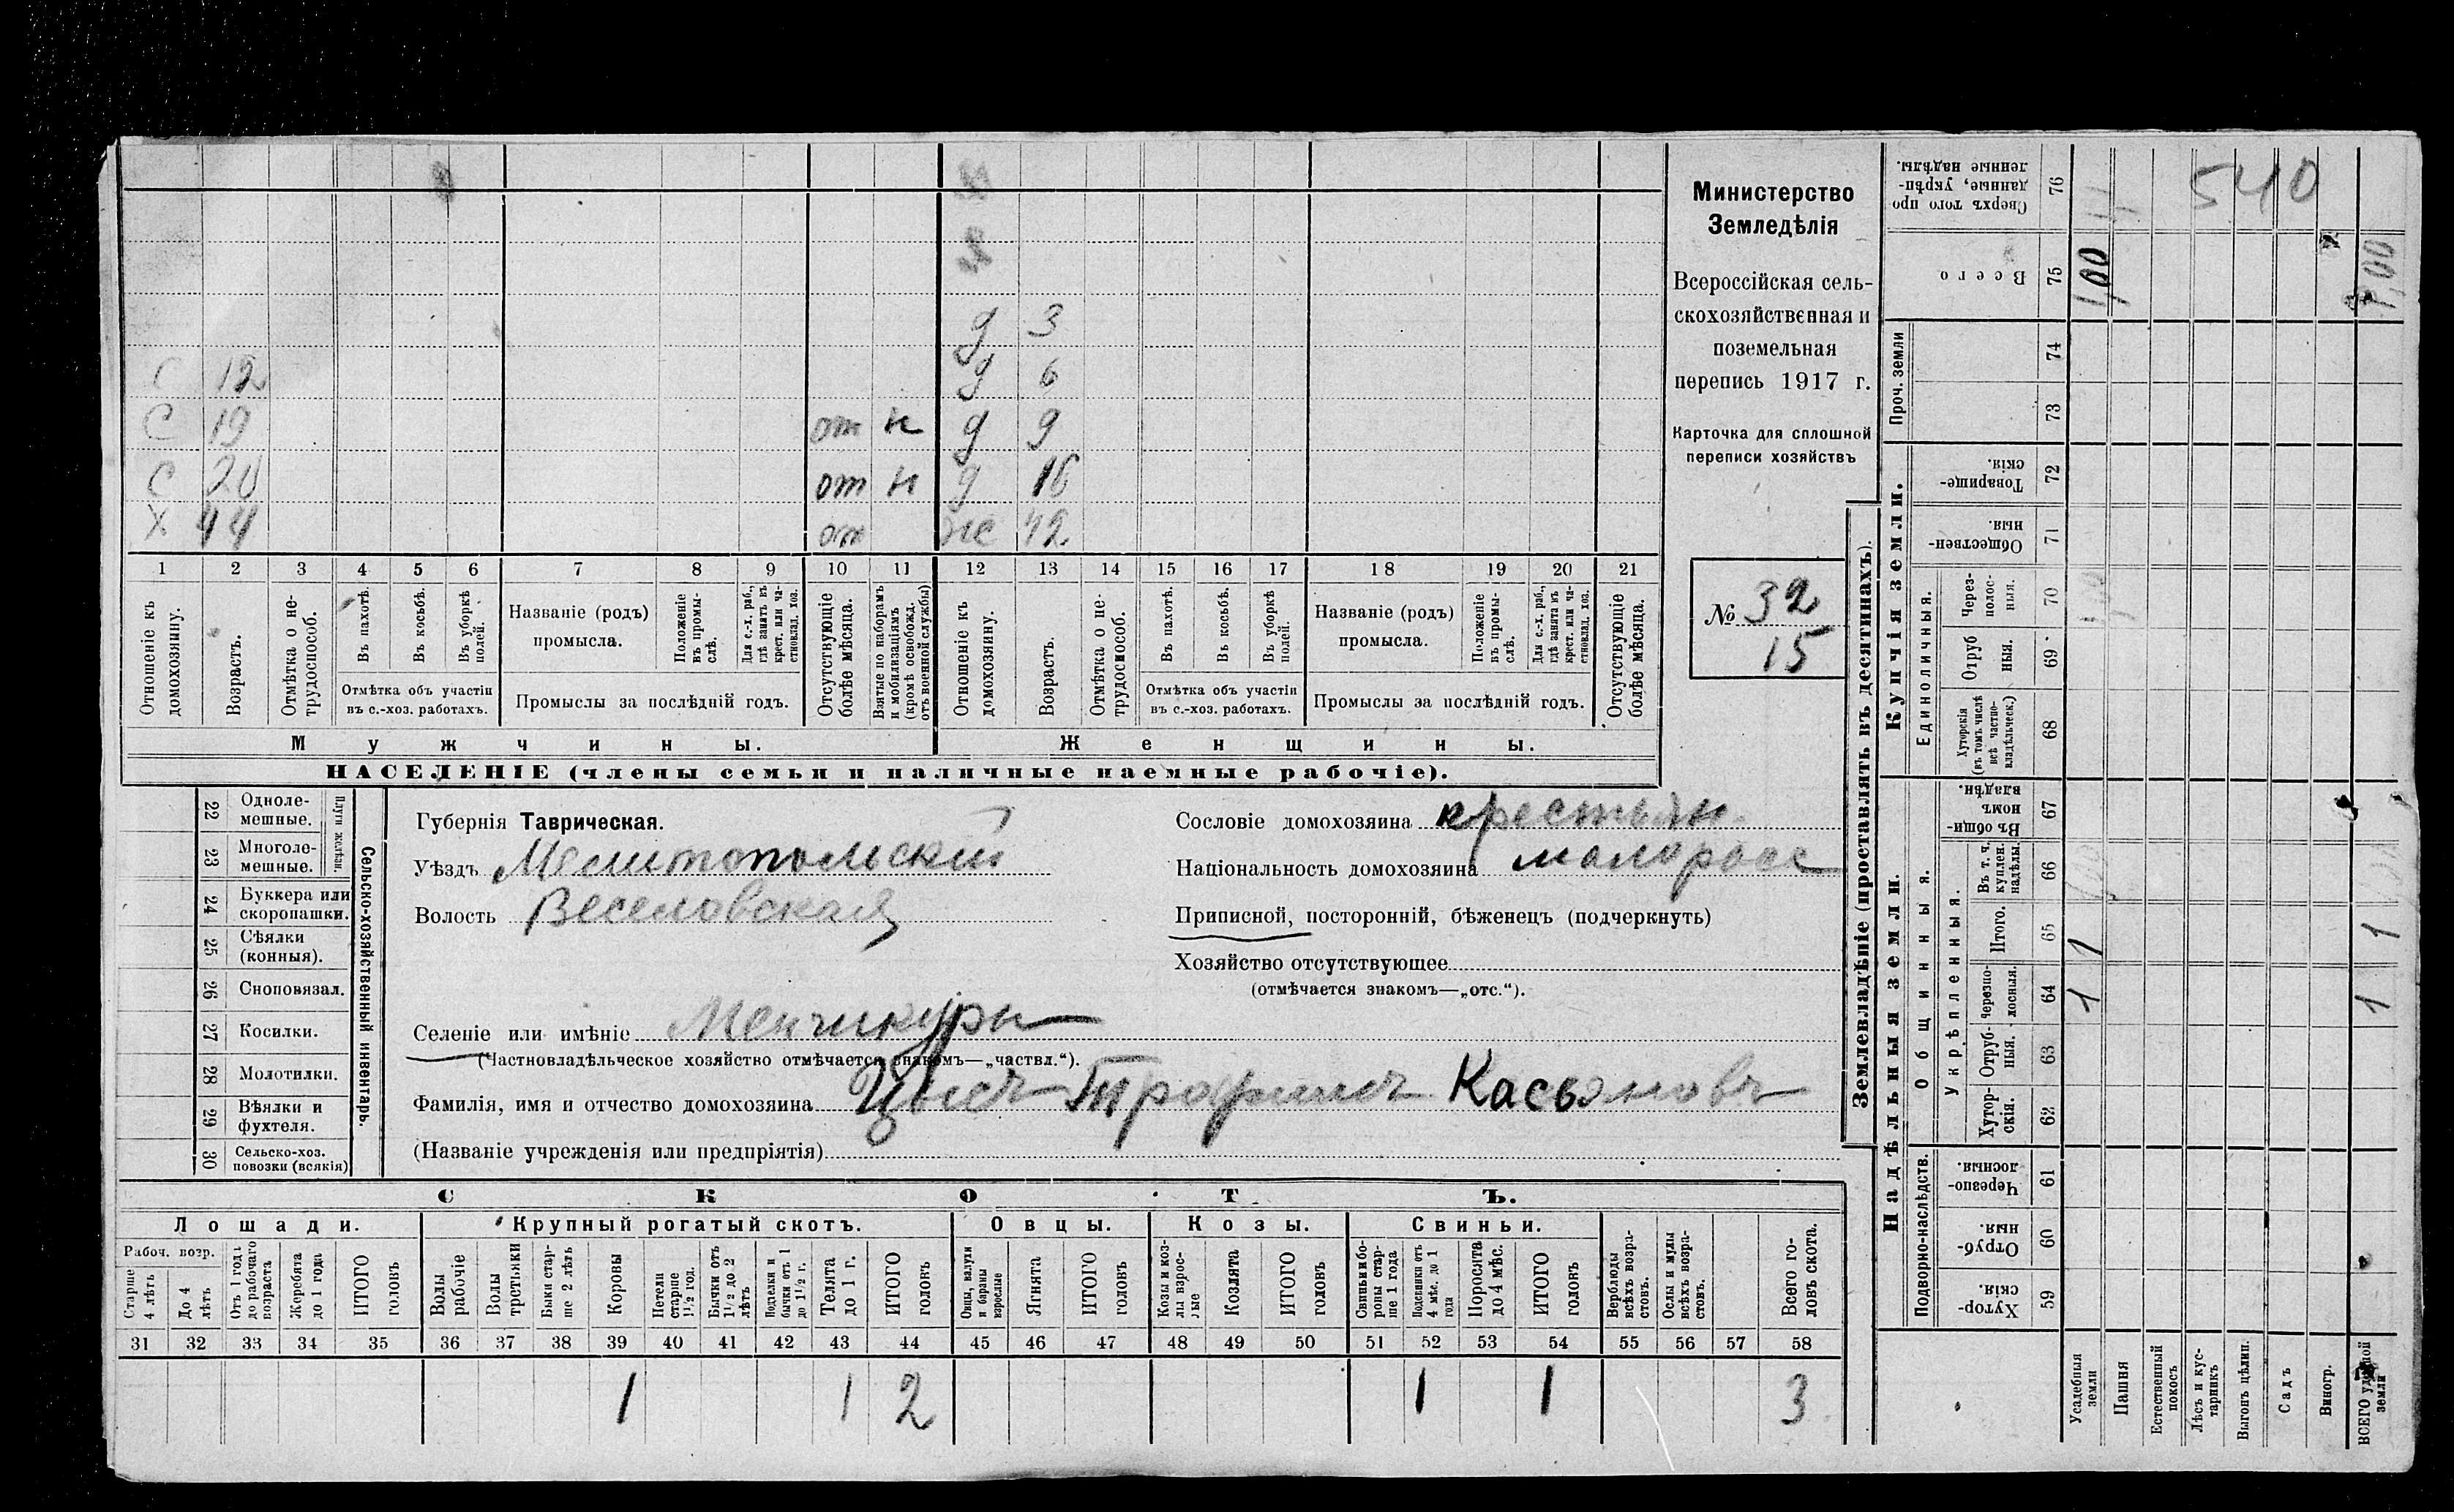 С 12 д 3
С 19 от н д 6
С 20 от н д 9
Х 44 от д 16
ж 42
1 2 3 4 5 6 7 8 9 10 11 12 13 14 15 16 17 18 19 20 21
Отношеніе къ домохозяину.
Возрастъ.
Отмѣтка о нетрудоспособ.
Въ пахотѣ.
Въ косьбѣ.
Въ уборкѣ полей.
Отмѣтка объ участіи въ с.-хоз. работахъ.
Названіе (родъ) промысла.
Положеніе въ промыслѣ.
Для с.-х. раб., гдѣ занятъ въ крест. или частновлад. хоз.
Промыслы за послѣдній годъ.
Отсутствующіе болѣе мѣсяца.
Взятые по наборамъ и мобилизаціямъ (кромѣ освобожд. отъ военной службы)
Отношеніе къ домохозяину.
Возрастъ.
Отмѣтка о нетрудоспособ.
Въ пахотѣ.
Въ косьбѣ.
Въ уборкѣ полей.
Отмѣтка объ участіи въ с.-хоз. работахъ.
Названіе (родъ) промысла.
Положеніе въ промыслѣ.
Для с.-х. раб., гдѣ занята въ крест. или частновлад. хоз.
Промыслы за послѣдній годъ.
Отсутствующіе болѣе мѣсяца.
Мужчины.
Женщины.
НАСЕЛЕНІЕ (члены семьи и наличные наемные рабочіе).
Министерство
Земледѣлія
Всероссійская сель-
скохозяйственная и
поземельная
перепись 1917 г.
Карточка для сплошной
переписи хозяйствъ
№ 32
15
Сельско-хозяйственный инвентарь.
Плуги желѣзн.
22 Одноле-
мешные.
23 Многоле-
мешные.
24 Буккера или
скоропашки.
25 Сѣялки
(конныя).
26 Сноповязал.
27 Косилки.
28 Молотилки.
29 Вѣялки и
фухтеля.
30 Сельско-хоз.
повозки (всякія)
Губернія Таврическая.
Уѣздъ Мелитопольскій
Волость Веселовская
Селеніе или имѣніе Менчикуры
(Частновладѣльческое хозяйство отмѣчается знакомъ—„частвл.“).
Фамилія, имя и отчество домохозяина Цысъ Трофимъ Касьяновъ
(Названіе учрежденія или предпріятія)
Сословіе домохозяина крестьян.
Національность домохозяина малоросс
Приписной, посторонній, бѣженецъ (подчеркнуть)
Хозяйство отсутствующее
(отмѣчается знакомъ—„отс.“).
СКОТЪ.
Лошади.
Крупный рогатый скотъ.
Овцы.
Козы.
Свиньи.
Рабоч. возр.
Старше 4 лѣтъ
До 4 лѣтъ
Отъ 1 года до рабочаго возраста
Жеребята до 1 года
ИТОГО головъ
Волы рабочіе
Волы третьяки
Быки старше 2 лѣтъ
Коровы
Нетели старше 1 1/2 год.
Бычки отъ 1 1/2 до 2 лѣтъ
Подтелки и бычки отъ 1 до 1 1/2 г.
Телята до 1 г.
ИТОГО головъ
Овцы, валухи и бараны взрослые
Ягнята
ИТОГО головъ
Козы и козлы взрослые
Козлята
ИТОГО головъ
Свиньи и боровы старше 1 года
Подсвинки отъ 4 мѣс. до 1 года
Поросята до 4 мѣс.
ИТОГО головъ
Верблюды всѣхъ возрастовъ.
Ослы и мулы всѣхъ возрастовъ.
Всего головъ скота.
31 32 33 34 35 36 37 38 39 40 41 42 43 44 45 46 47 48 49 50 51 52 53 54 55 56 57 58
1 1 2 1 1 3
Землевладѣніе (проставлять въ десятинахъ).
Купчія земли.
Надѣльныя земли.
Проч. земли
Единоличныя.
Общинныя.
Укрѣпленныя.
Подворно-наслѣдств.
76 Сверхъ того проданные, укрѣпленные надѣлы.
75 Всего
74
73
72 Товарищескія.
71 Общественныя.
70 Черезполосныя.
69 Отрубныя.
68 Хуторскія (въ томъ числѣ всѣ частновладѣльческ.)
67 Въ общинномъ владѣн.
66 Въ т. ч. куплен. надѣлы.
65 Итого.
64 Черезполосныя.
63 Отрубныя.
62 Хуторскія.
61 Черезполосныя.
60 Отрубныя.
59 Хуторскія.
540
1,00
1 1
1 1
Усадебныя земли
Пашня
Естественный покосъ
Лѣсъ и кустарникъ
Выгонъ цѣлин.
Садъ
Виногр.
ВСЕГО удобной земли